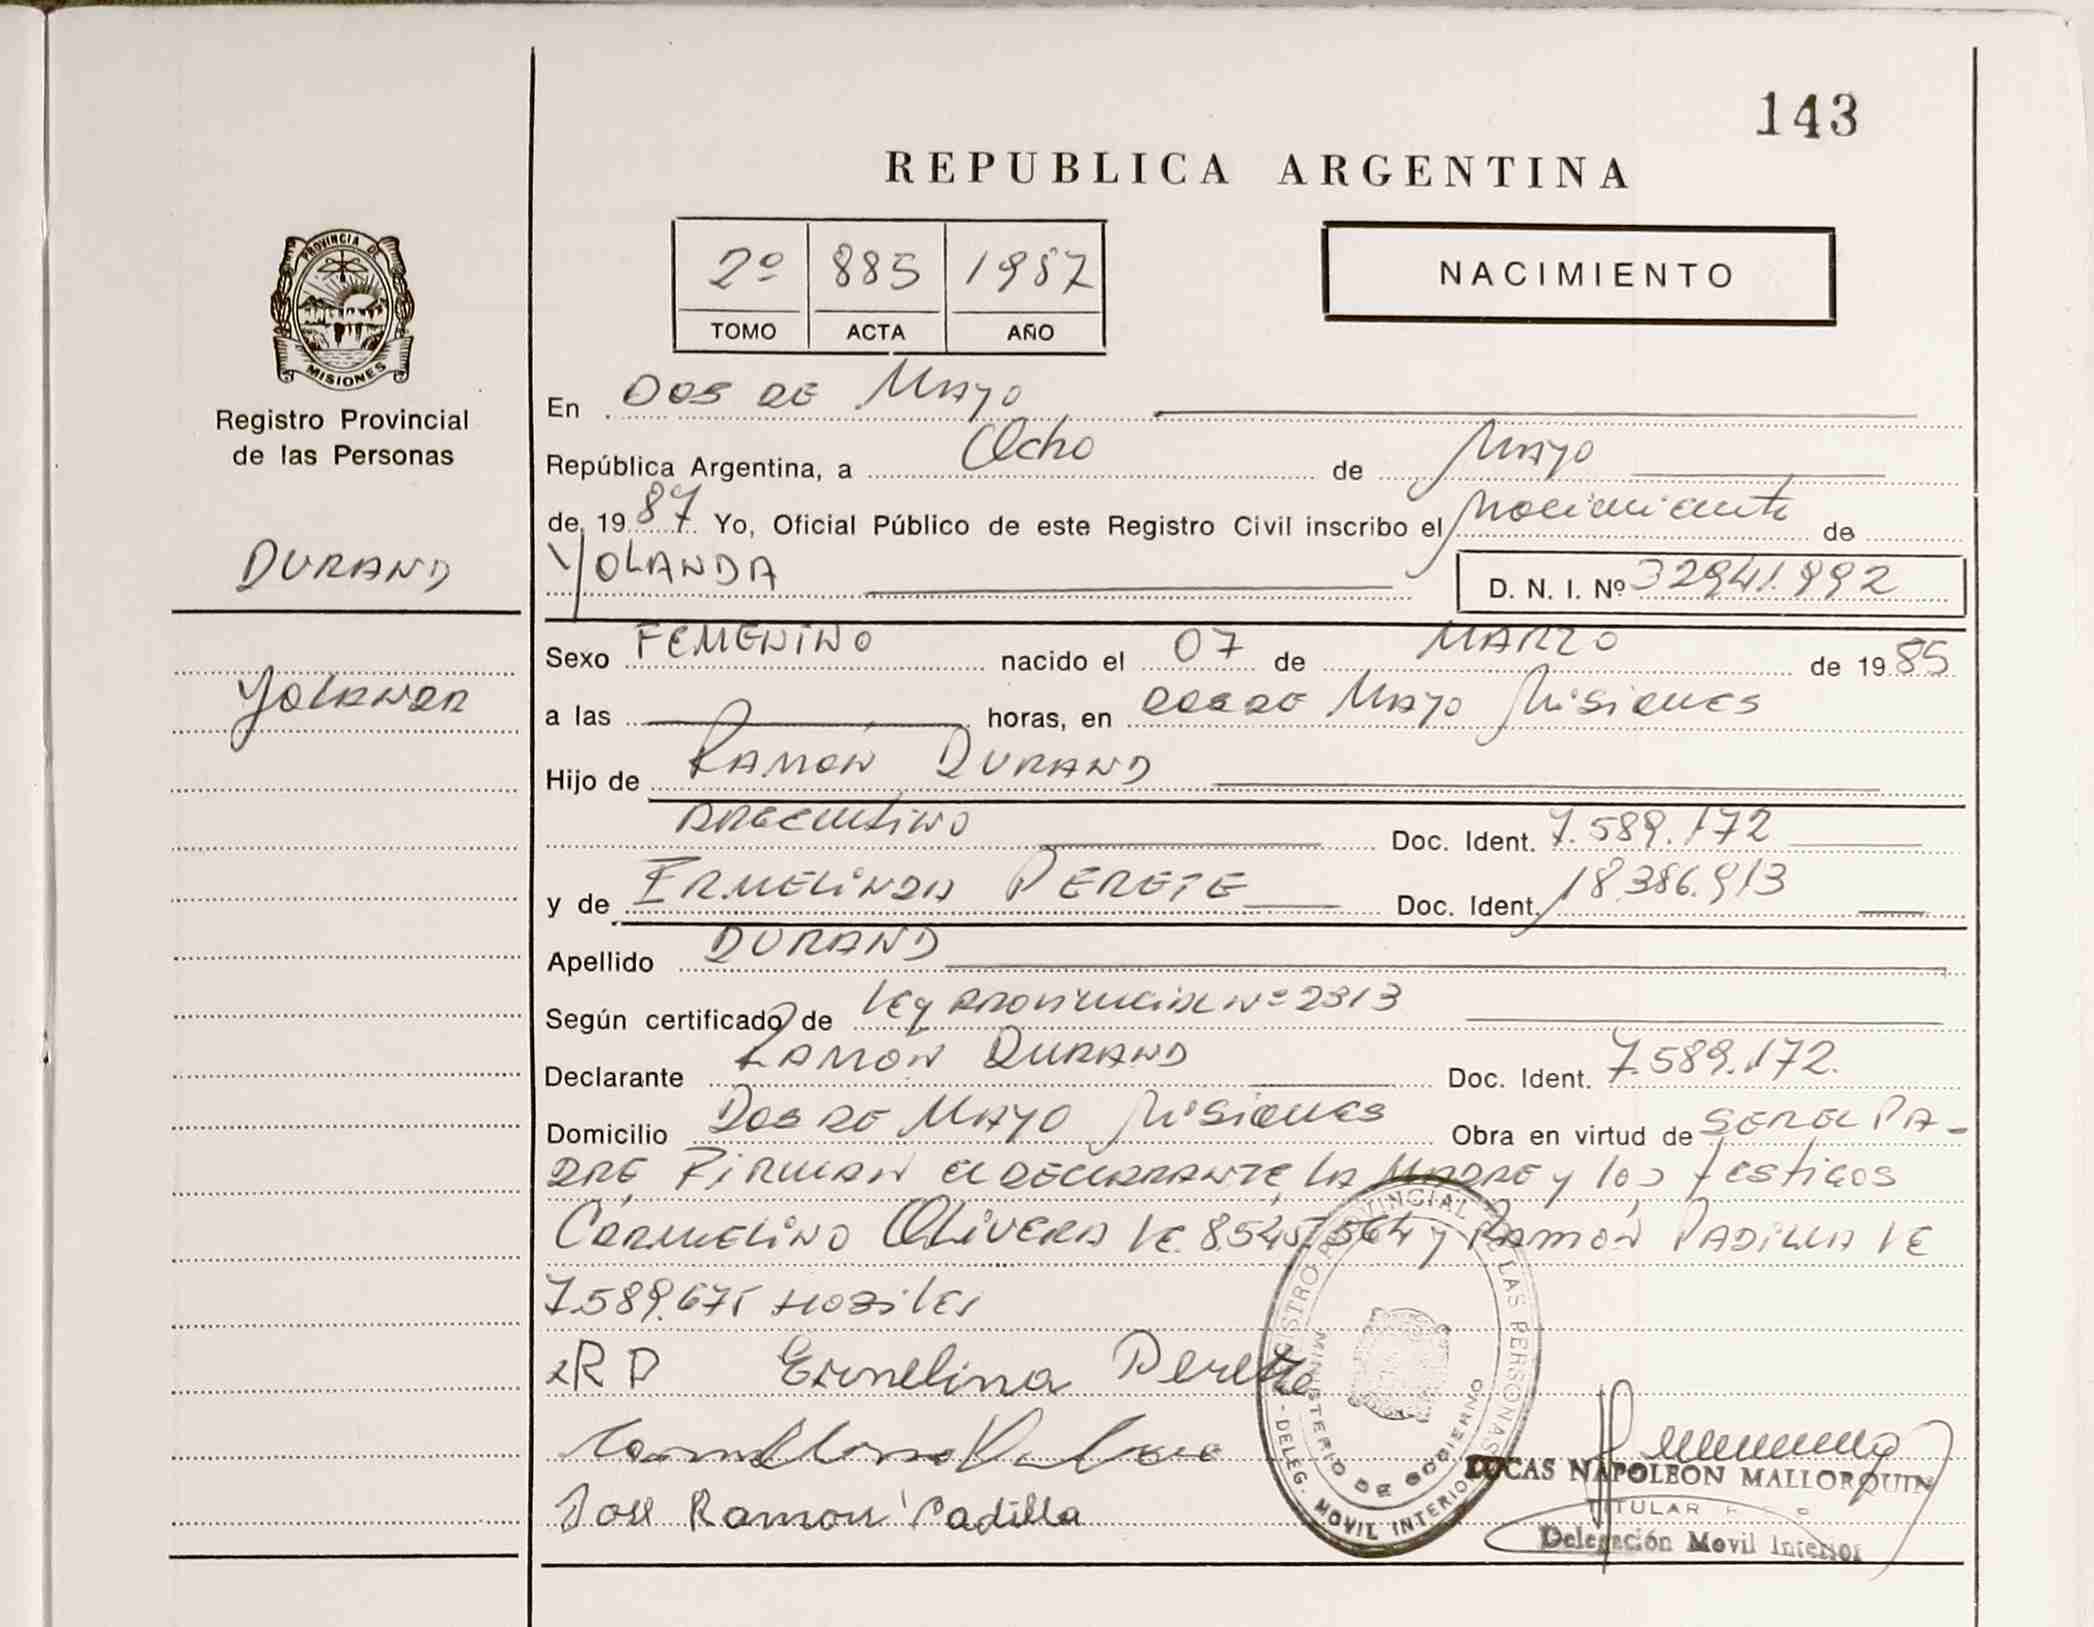 143
REPUBLICA ARGENTINA
2º 885 1987
TOMO ACTA AÑO
NACIMIENTO
PROVINCIA DE
MISIONES
Registro Provincial
de las Personas
DURAND
YOLANDA
En DOS DE MAYO
República Argentina, a Ocho de MAYO
de 1987 Yo, Oficial Público de este Registro Civil inscribo el Nacimiento de
YOLANDA D. N. I. Nº 32941.992
Sexo FEMENINO nacido el 07 de MARZO de 1985
a las horas, en DOS DE MAYO Misiones
Hijo de RAMON DURAND
ARGENTINO Doc. Ident. 7.589.172
y de ERMELINDA PERETE Doc. Ident. 18.386.913
Apellido DURAND
Según certificado de Ley PROVINCIAL Nº 2313
Declarante RAMON DURAND Doc. Ident. 7.589.172.
Domicilio DOS DE MAYO Misiones Obra en virtud de SER EL PA-
DRE, FIRMAN EL DECLARANTE, LA MADRE y los testigos
CARMELINO OLIVERA LE. 8.545.564 y RAMON PADILLA LE
7.589.675 HABILES
RD Ermelina Perette
José Ramon Padilla
REGISTRO PROVINCIAL DE LAS PERSONAS
MINISTERIO DE GOBIERNO
- DELEG. MOVIL INTERIOR
LUCAS NAPOLEON MALLORQUIN
TITULAR
Delegación Movil Interior